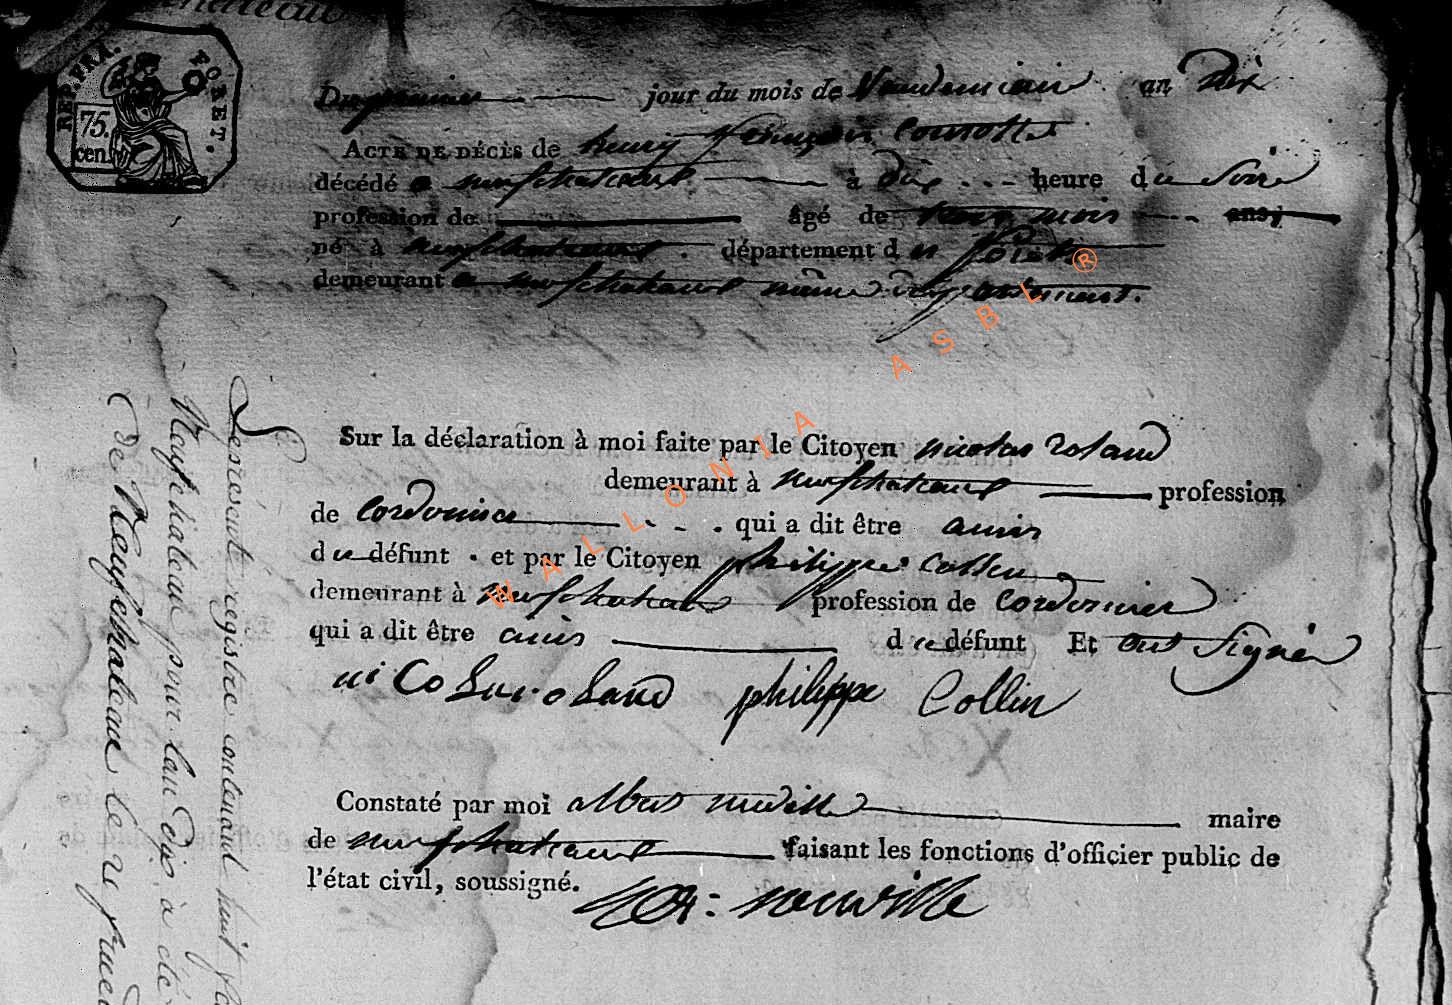 REP. FRA. FORET.
75.
cen.
Du premier jour du mois de Vendemiaire an Dix
ACTE DE DÉCÈS de henry
décédé a neufchateau à dix heure du Soir
profession de âgé de mois ans,
né à neufchateau département d forêts
demeurant a neufchateau même departement.
Sur la déclaration à moi faite par le Citoyen nicolas roland
demeurant à neufchateau profession
de cordonnier qui a dit être amis
du défunt et par le Citoyen philippe collin
demeurant à neufchateau profession de cordonnier
qui a dit être amis du défunt Et ont Signé
nicolas roland philippe Collin
Constaté par moi neuville maire
de neufchateau faisant les fonctions d'officier public de
l'état civil, soussigné.
neuville
Le présent registre contenant huit
Neufchateau pour l'an Dix, a
de Neufchateau le
WALLONIA ASBL®